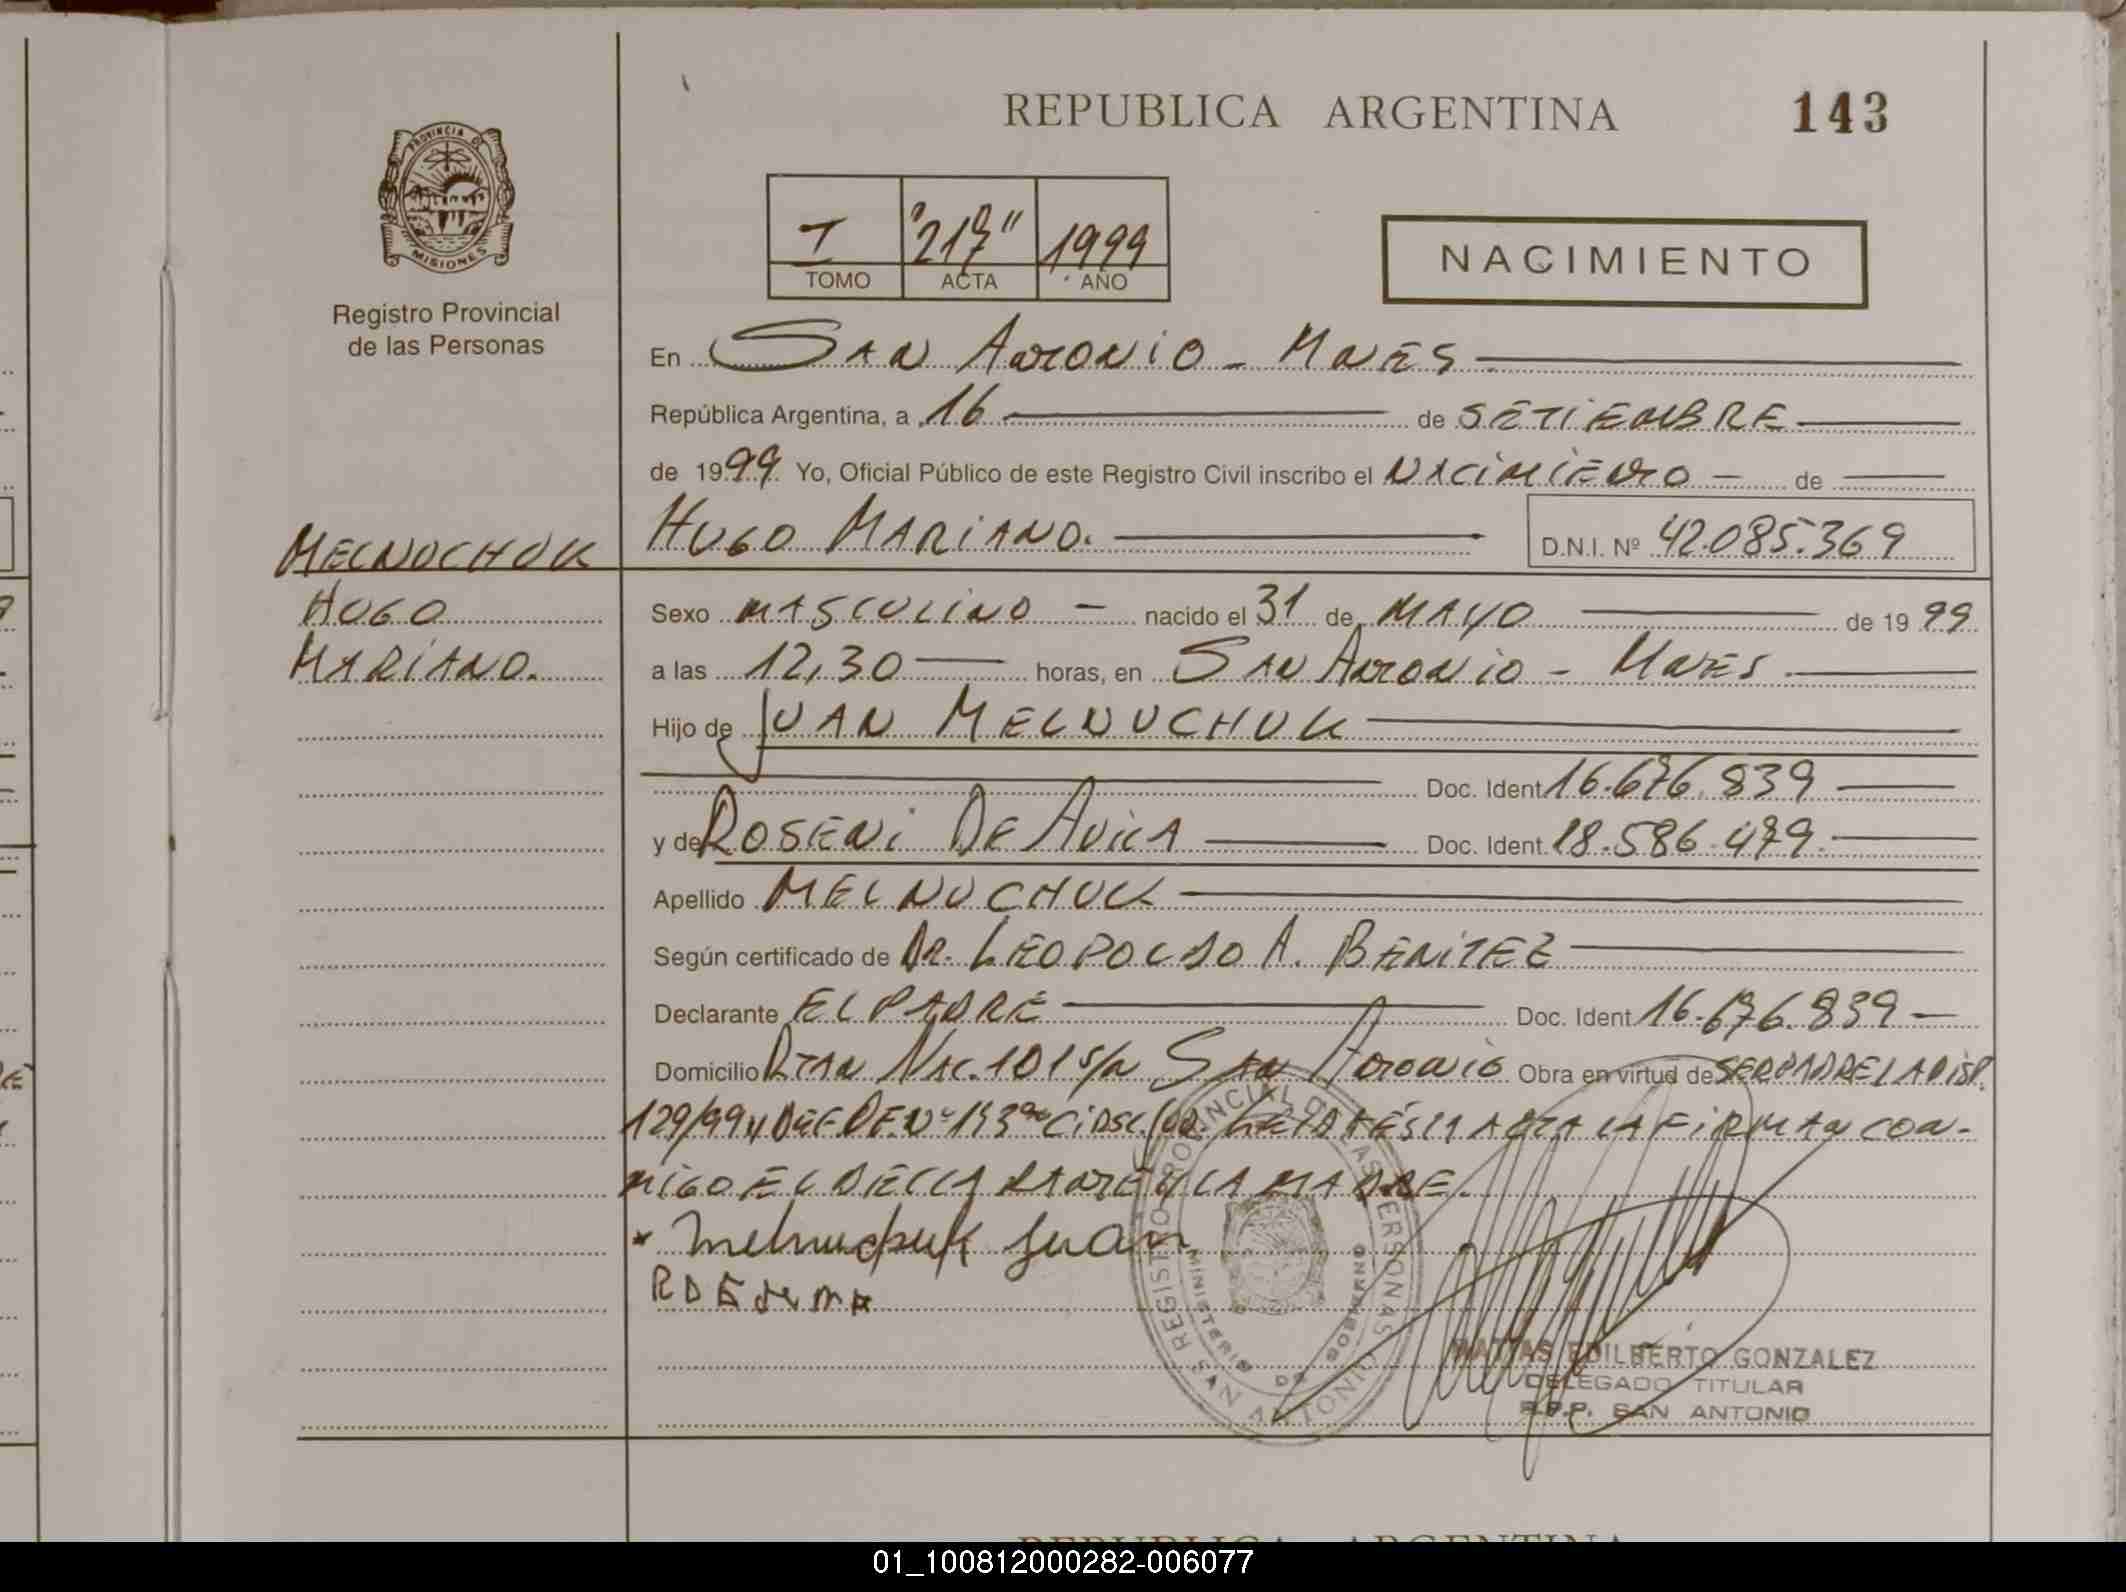 REPUBLICA ARGENTINA
143
PROVINCIA DE
MISIONES
Registro Provincial
de las Personas
I "217" 1999
TOMO ACTA AÑO
NACIMIENTO
En SAN ANTONIO - MNES
República Argentina, a 16 de SETIEMBRE
de 1999 Yo, Oficial Público de este Registro Civil inscribo el NACIMIENTO - de
HUGO MARIANO.
D.N.I. Nº 42.085.369
MELNUCHUK
HUGO
MARIANO.
Sexo MASCULINO - nacido el 31 de MAYO de 1999
a las 12,30 horas, en SAN ANTONIO - MNES
Hijo de JUAN MELNUCHUK
Doc. Ident 16.676.839
y de ROSENI DE AVILA Doc. Ident. 18.586.479.
Apellido MELNUCHUK
Según certificado de DR. LEOPOLDO A. BENITEZ
Declarante EL PADRE Doc. Ident 16.676.839
Domicilio RTA NAC. 101 S/N SAN ANTONIO Obra en virtud de SER PADRE LA DISP.
129/99 LEIDA ESTA ACTA LA FIRMAN CON-
MIGO EL DECLARANTE Y LA MADRE.
* Melnuchuk Juan
REGISTRO PROVINCIAL DE LAS PERSONAS
MINISTERIO DE GOBIERNO
SAN ANTONIO
MATIAS EDILBERTO GONZALEZ
DELEGADO TITULAR
R.P.P. SAN ANTONIO
REPUBLICA ARGENTINA
01_100812000282-006077